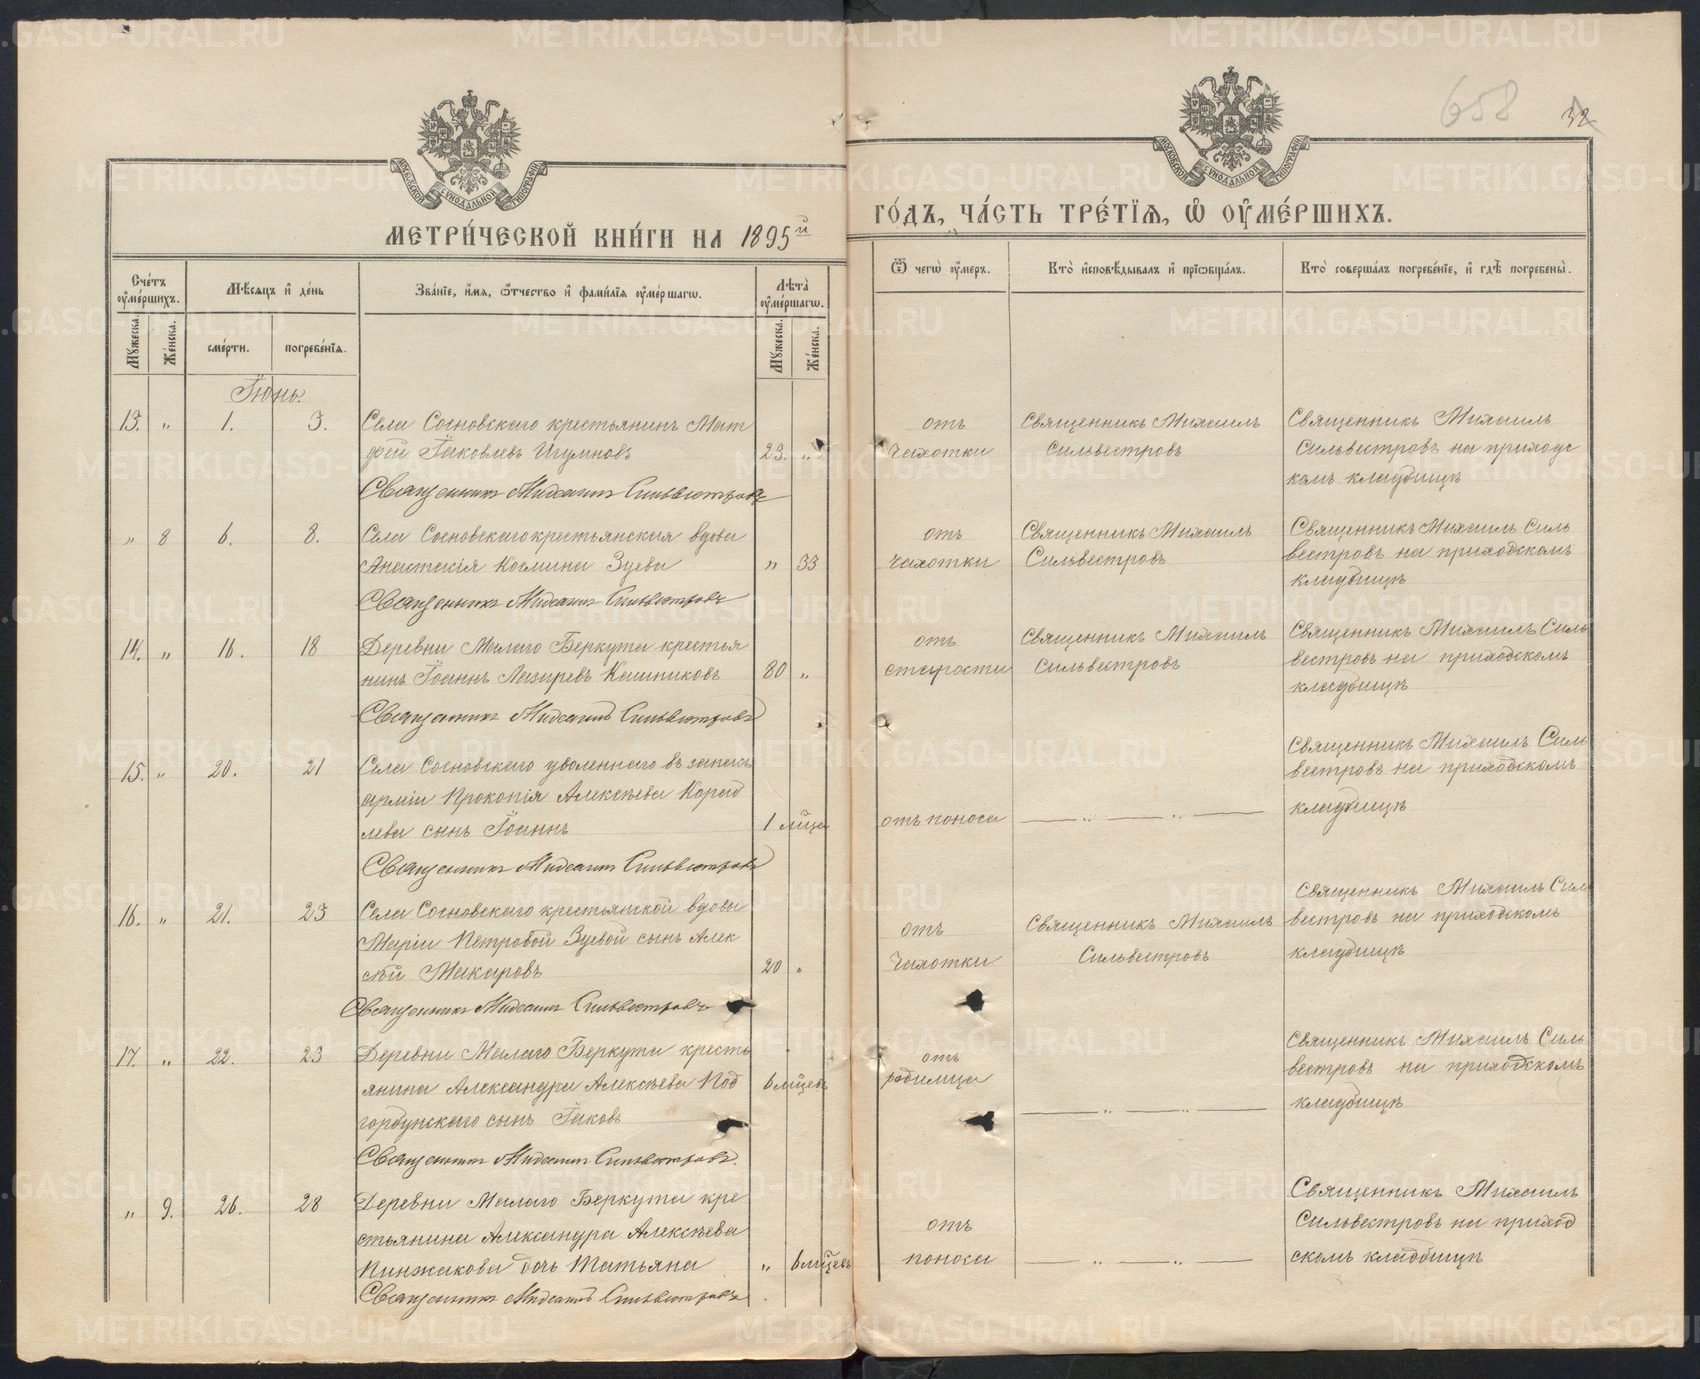 МЕТРИ́ЧЕСКОЙ КНИ́ГИ НА 1895й
ГО́ДЪ, ЧА́СТЬ ТРЕ́ТІѦ, Ѡ ОУМЕ́РШИХЪ.
658
32
Сче́тъ оуме́ршихъ.
Мѣсяцъ и де́нь
Зва́нїе, и́мя, ѻтчество и фами́лїя оуме́ршагѡ.
Лѣта̀ оуме́ршагѡ.
Ѿ чегѡ̀ оу́меръ.
Кто̀ исповѣдывалъ и прїѡбща́лъ.
Кто̀ соверша́лъ погребе́нїе, и гдѣ̀ погребены̀.
Мꙋжеска.
Же́нска.
сме́рти.
погребе́нїя.
Мꙋжеска.
Же́нска.
Іюнь.
13. " 1. 3. Села Сосновскаго крестьянинъ Мат
фей Іаковлевъ Игумновъ 23. "
Священникъ Михаилъ Сильвестровъ
отъ
чахотки
Священникъ Михаилъ
Сильвестровъ
Священникъ Михаилъ
Сильвестровъ на приходс
комъ кладбищѣ
" 8 6. 8. Села Сосновскаго крестьянская вдова
Анастасія Космина Зуева " 33
Священникъ Михаилъ Сильвестровъ
отъ
чахотки
Священникъ Михаилъ
Сильвестровъ
Священникъ Михаилъ Силь
вестровъ на приходскомъ
кладбищѣ
14. " 16. 18 Деревни Малаго Беркута крестья
нинъ Іоаннъ Лазаревъ Кашниковъ 80 "
Священникъ Михаилъ Сильвестровъ
отъ
старости
Священникъ Михаилъ
Сильвестровъ
Священникъ Михаилъ Силь
вестровъ на приходскомъ
кладбищѣ
15. " 20. 21 Села Сосновскаго уволеннаго въ запасъ
арміи Прокопія Алексѣева
лева сынъ Іоаннъ 1 мѣца
Священникъ Михаилъ Сильвестровъ
отъ поноса
— " — " —
Священникъ Михаилъ Силь
вестровъ на приходскомъ
кладбищѣ
16. " 21. 23 Села Сосновскаго крестьянской вдовы
Маріи Петровой Зуевой сынъ Алек
сѣй Макаровъ 20 "
Священникъ Михаилъ Сильвестровъ
отъ
чахотки
Священникъ Михаилъ
Сильвестровъ
Священникъ Михаилъ Силь
вестровъ на приходскомъ
кладбищѣ
17. " 22. 23 Деревни Малаго Беркута кресть
янина Александра Алексѣева Под
горбунскаго сынъ Іаковъ 6 мѣцевъ
Священникъ Михаилъ Сильвестровъ.
отъ
родимца
— " — " —
Священникъ Михаилъ Силь
вестровъ на приходскомъ
кладбищѣ
" 9. 26. 28 Деревни Малаго Беркута кре
стьянина Александра Алексѣева
Пинжакова дочь Татьяна " 6 мѣцевъ
Священникъ Михаилъ Сильвестровъ
отъ
поноса
— " — " —
Священникъ Михаилъ
Сильвестровъ на приход
скомъ кладбищѣ
METRIKI.GASO-URAL.RU